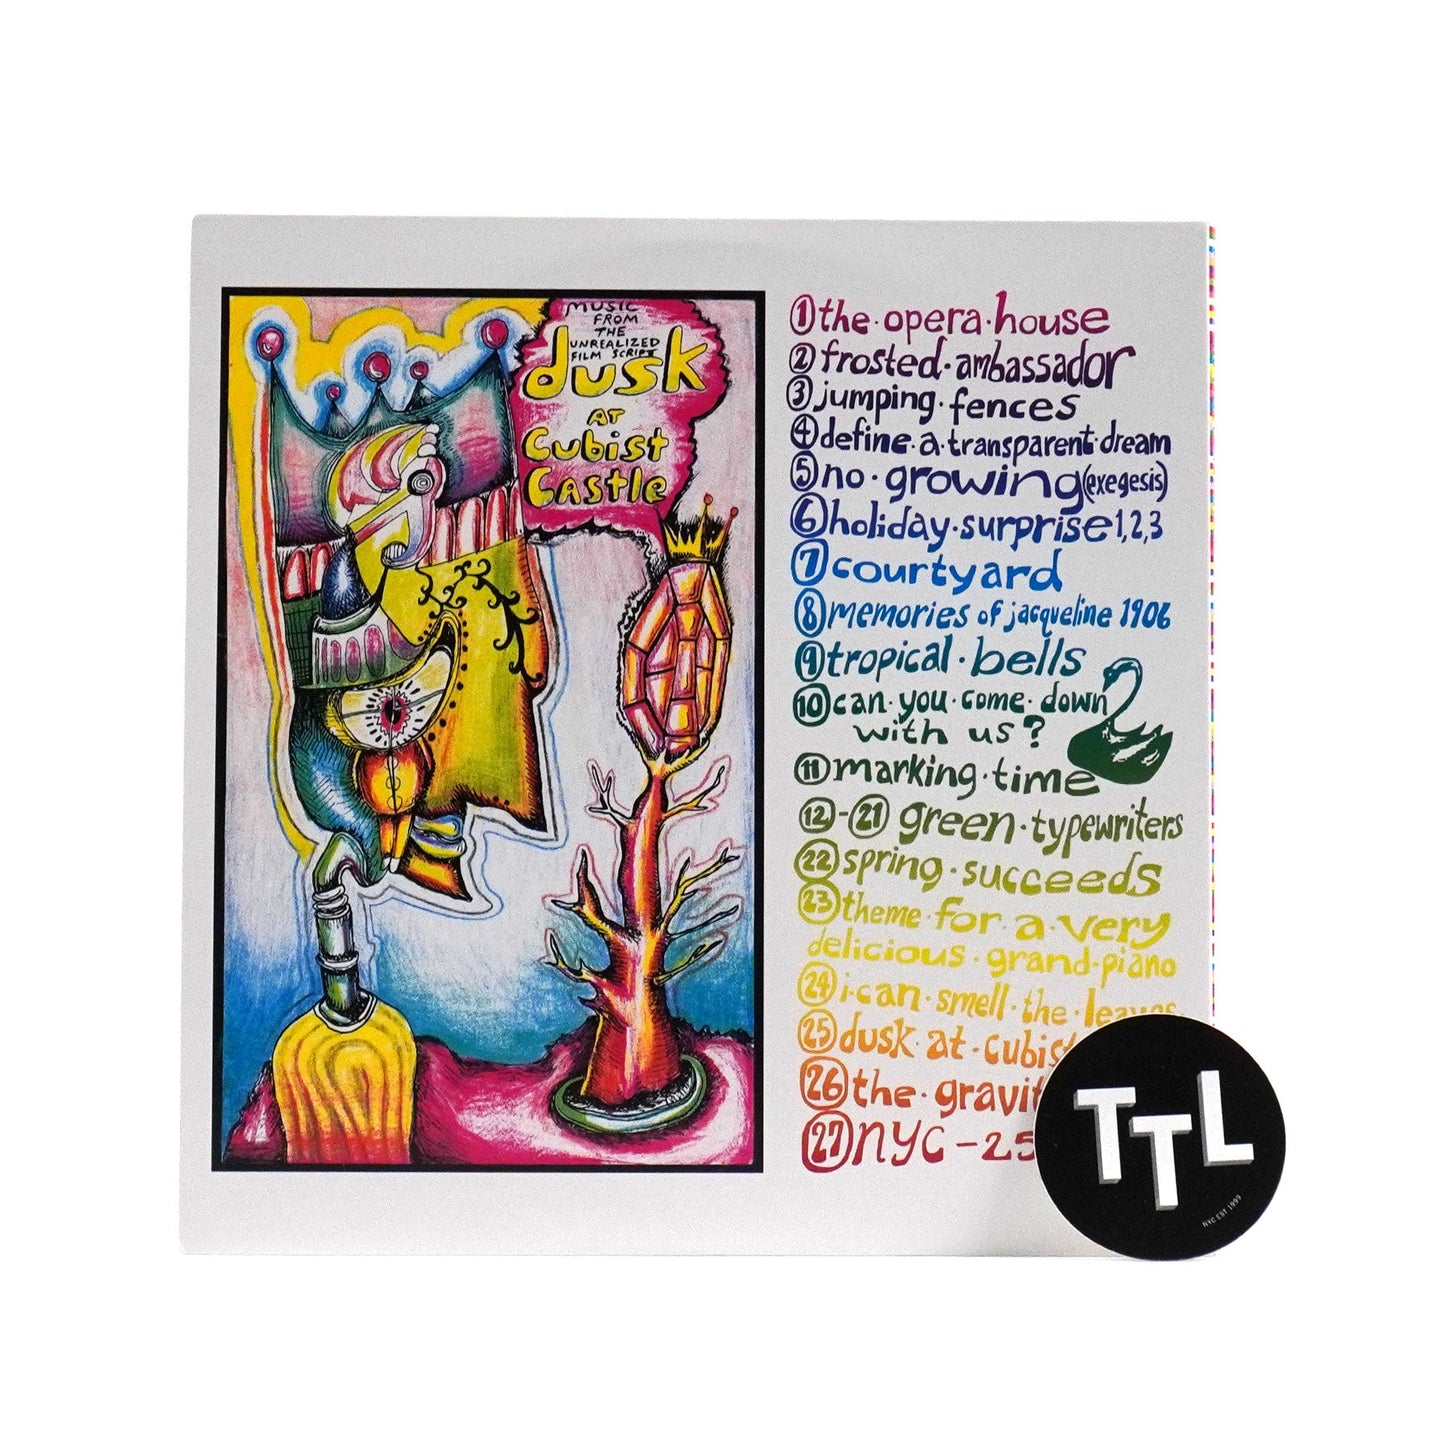 MUSIC
FROM
THE
UNREALIZED
FILM SCRIPT
dusk
AT
Cubist
Castle
1 the·opera·house
2 frosted·ambassador
3 jumping·fences
4 define·a·transparent·dream
5 no·growing(exegesis)
6 holiday·surprise 1,2,3
7 courtyard
8 memories of jacqueline 1906
9 tropical·bells
10 can·you·come·down
with us?
11 marking·time
12-21 green·typewriters
22 spring·succeeds
23 theme·for·a·very
delicious·grand·piano
24 i·can·smell·the·leaves
25 dusk·at·cubis
26 the·gravit
27 nyc-25
TTL
NYC EST 1999